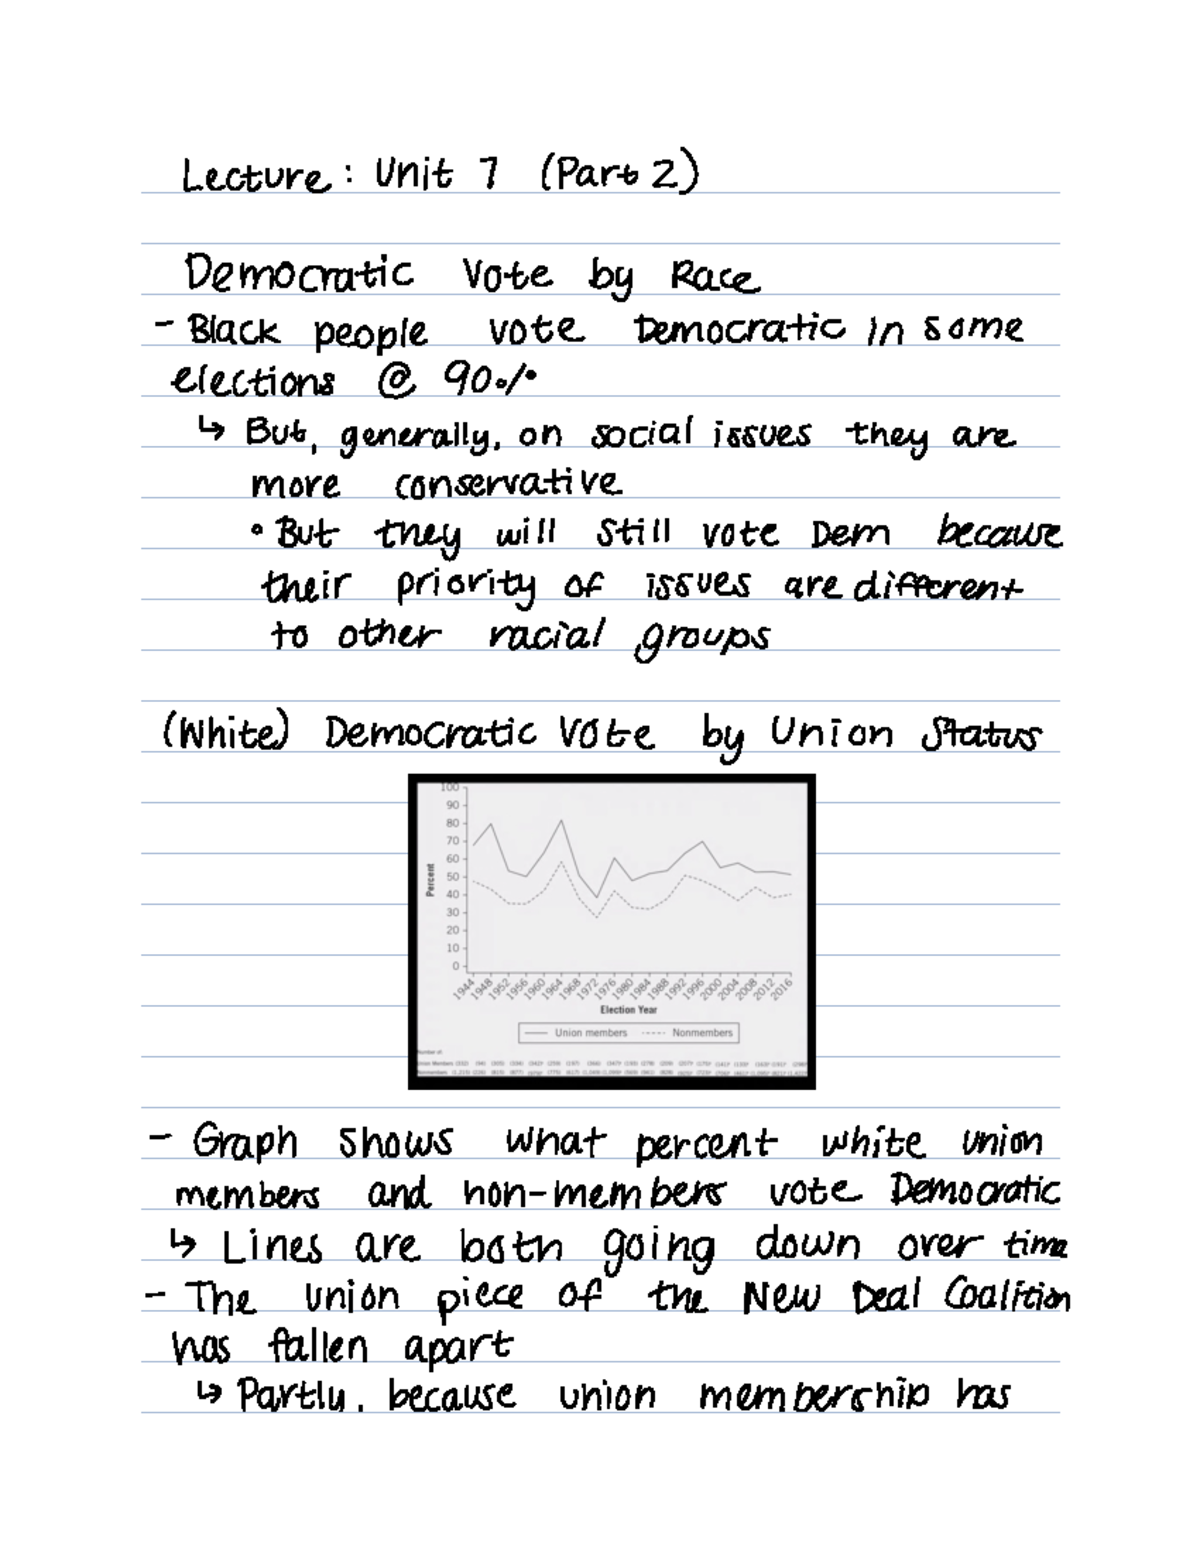 Lecture: Unit 7 (Part 2)
Democratic Vote by Race
- Black people vote Democratic in some
elections @ 90%
↳ But, generally, on social issues they are
more conservative
• But they will still vote Dem because
their priority of issues are different
to other racial groups
(White) Democratic Vote by Union Status
100
90
80
70
60
50
40
30
20
10
0
Percent
1944 1948 1952 1956 1960 1964 1968 1972 1976 1980 1984 1988 1992 1996 2000 2004 2008 2012 2016
Election Year
Union members Nonmembers
Number of:
Union Members
Nonmembers
- Graph shows what percent white union
members and non-members vote Democratic
↳ Lines are both going down over time
- The union piece of the New Deal Coalition
has fallen apart
↳ Partly, because union membership has